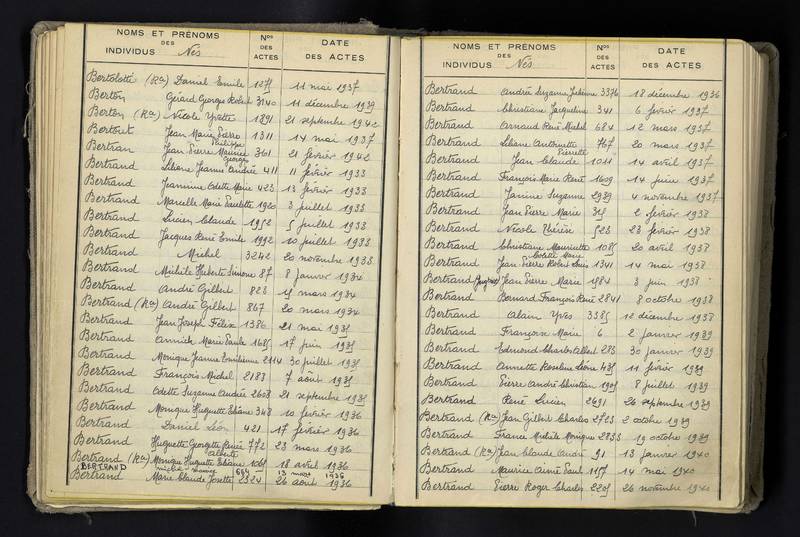 NOMS ET PRÉNOMS DES INDIVIDUS Nés Nos DES ACTES DATE DES ACTES
Bertolotti (Ra) Daniel Emile 1275 11 mai 1937
Berton Gérard Georges Robert 3140 11 décembre 1939
Berton (Ra) Nicole Yvette 1891 21 septembre 1942
Jean Marie Pierre 1311 14 mai 1937
Bertran Jean Pierre Maurice Philippe Georges 361 21 février 1942
Bertrand Liliane Jeanne Andrée 411 11 février 1933
Bertrand Jeannine Odette Marie 423 13 février 1933
Bertrand Marcelle Marie Paulette 1920 3 juillet 1933
Bertrand Lucien Claude 1952 5 juillet 1933
Bertrand Jacques René Emile 1992 10 juillet 1933
Bertrand Michel 3242 20 novembre 1933
Bertrand Michèle Huberte Simone 87 8 janvier 1934
Bertrand André Gilbert 823 15 mars 1934
Bertrand (Ra) André Gilbert 867 20 mars 1934
Bertrand Jean Joseph Félix 1386 21 mai 1935
Bertrand Annick Marie Paule 1685 17 juin 1935
Bertrand Monique Jeanne Emilienne 2114 30 juillet 1935
Bertrand François Michel 2183 7 août 1935
Bertrand Odette Suzanne Andrée 2608 21 septembre 1935
Bertrand Monique Huguette Eliane 348 10 février 1936
Bertrand Daniel Léon 421 17 février 1936
Bertrand Huguette Georgette Renée 772 23 mars 1936
Bertrand (Ra) Monique Huguette Eliane Alberte 1061 18 avril 1936
BERTRAND 684 13 mars 1936
Bertrand Marie Claude Josette 2324 26 août 1936
NOMS ET PRÉNOMS DES INDIVIDUS Nés Nos DES ACTES DATE DES ACTES
Bertrand Andrée Suzanne 3376 18 décembre 1936
Bertrand Christiane Jacqueline 341 6 février 1937
Bertrand Arnaud René Michel 684 12 mars 1937
Bertrand Liliane Antoinette Pierrette 767 20 mars 1937
Bertrand Jean Claude 1011 14 avril 1937
Bertrand François Marie René 1609 14 juin 1937
Bertrand Janine Suzanne 2939 4 novembre 1937
Bertrand Jean Pierre Marie 315 2 février 1938
Bertrand Nicole Thérèse 523 23 février 1938
Bertrand Christiane Mauricette 1085 20 avril 1938
Bertrand Jean Pierre Robert Louis 1341 14 mai 1938
Colette Marie
Bertrand Jean Pierre Marie 1524 3 juin 1938
Bertrand Bernard François René 2841 8 octobre 1938
Bertrand Alain Yves 3385 12 décembre 1938
Bertrand Françoise Marie 6 2 janvier 1939
Bertrand Edmond Charles Albert 285 30 janvier 1939
Bertrand Annette Roseline Léone 435 11 février 1939
Bertrand Pierre André Christian 1905 8 juillet 1939
Bertrand René Lucien 2691 26 septembre 1939
Bertrand (Ra) Jean Gilbert Charles 2723 2 octobre 1939
Bertrand France Michèle Monique 2833 19 octobre 1939
Bertrand (Ra) Jean Claude André 91 13 janvier 1940
Bertrand Maurice Aimé Paul 1157 14 mai 1940
Bertrand Pierre Roger Charles 2205 26 novembre 1940